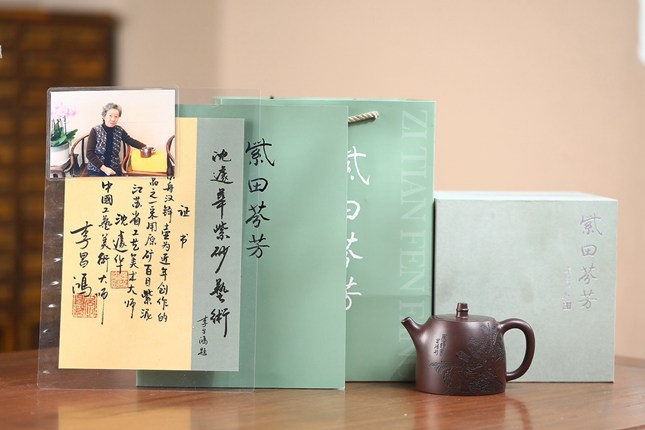 沈遽华紫砂艺術
李昌鴻題
证书
汉铎壶为近年创作的
品之一采用原矿百目紫泥
江苏省工艺美术大师
沈遽华
中國工艺美術大师
李昌鴻
紫田芬芳
紫田芬芳
ZI TIAN FEN
紫田芬芳